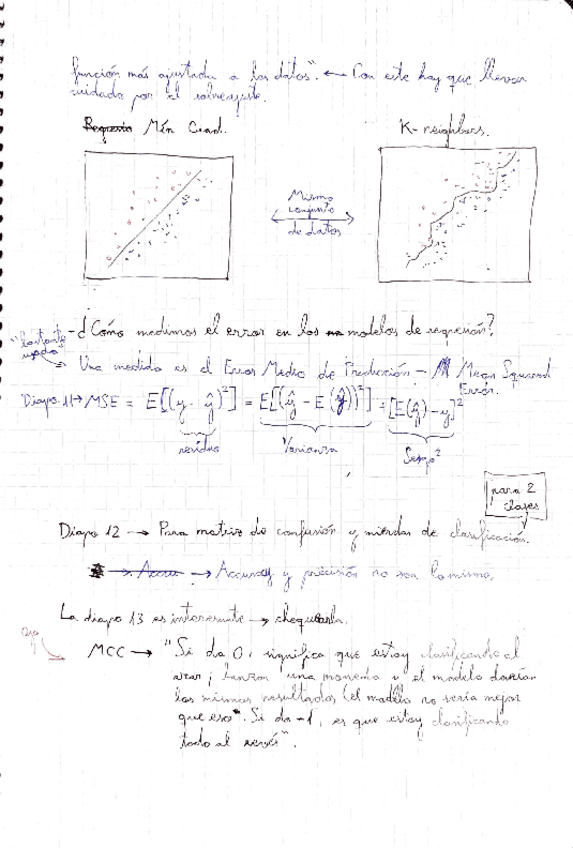 función más ajustada a los datos". ← Con este hay que llevar
cuidado por el sobreajuste.
Regresión Mín Cuad.
K-neighbors.
Mismo
conjunto
de datos
- ¿Cómo medimos el error en los modelos de regresión?
"bastante
usado"
→ Una medida es el Error Medio de Predicción - Mean Squared
Error.
Diapo 11 → MSE = E[(y - ŷ)²] = E[(ŷ - E(ŷ))²] + [E(ŷ) - y]²
residuo
Varianza
Sesgo²
para 2
clases
Diapo 12 → Para matriz de confusión y mierdas de clasificación.
→ Accura → Accuracy y precisión no son lo mismo.
La diapo 13 es interesante → chequearla.
ojo
MCC → "Si da 0, significa que estoy clasificando al
azar; lanzar una moneda y el modelo darían
los mismos resultados (el modelo no sería mejor
que eso". Si da -1, es que estoy clasificando
todo al revés".